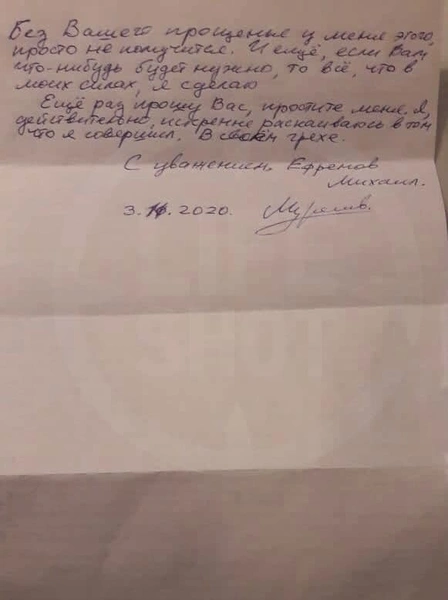 Без Вашего прощенья у меня этого,
просто не получится. И ещё, если Вам
что-нибудь будет нужно, то всё, что в
моих силах, я сделаю
Ещё раз прошу Вас, простите меня. Я,
действительно, искренне раскаиваюсь в том
что я совершил. В своём грехе.
С уважением, Ефремов
Михаил.
3.11.2020.
SHOT